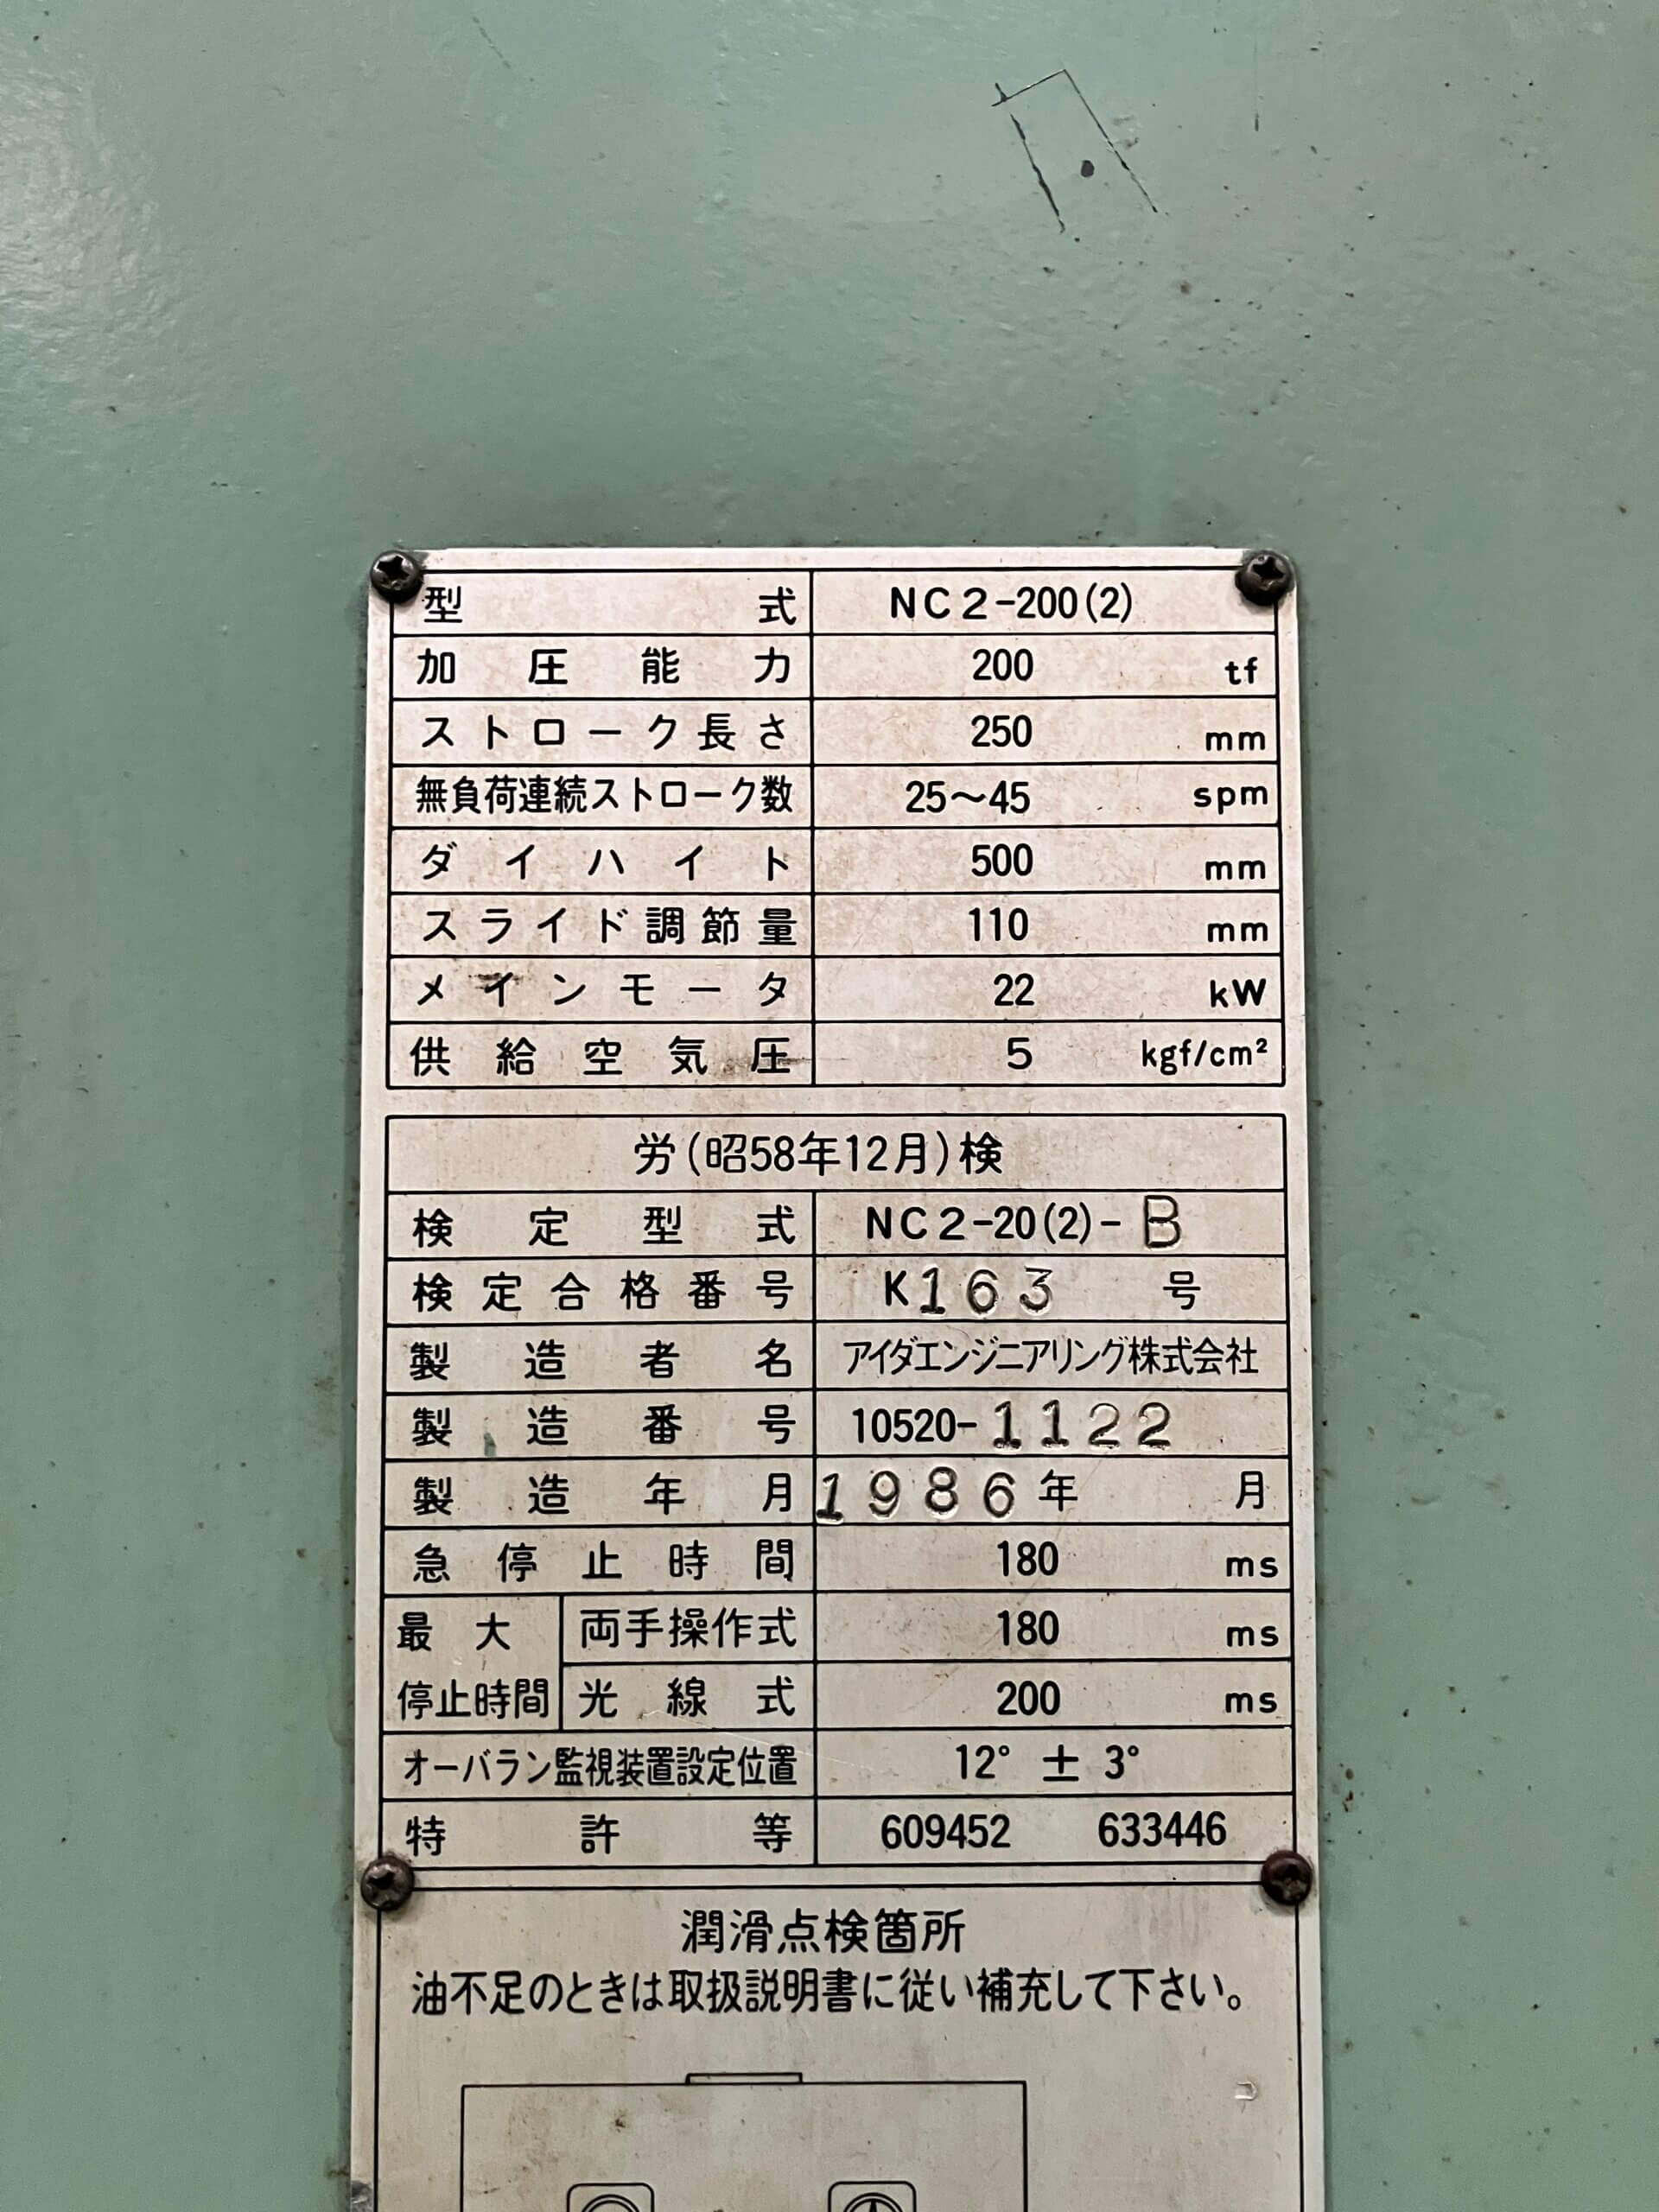 型式 NC2-200(2)
加圧能力 200 tf
ストローク長さ 250 mm
無負荷連続ストローク数 25～45 spm
ダイハイト 500 mm
スライド調節量 110 mm
メインモータ 22 kW
供給空気圧 5 kgf/cm²
労(昭58年12月)検
検定型式 NC2-20(2)-B
検定合格番号 K163 号
製造者名 アイダエンジニアリング株式会社
製造番号 10520-1122
製造年月 1986年 月
急停止時間 180 ms
最大停止時間 両手操作式 180 ms
光線式 200 ms
オーバラン監視装置設定位置 12° ± 3°
特許等 609452 633446
潤滑点検箇所
油不足のときは取扱説明書に従い補充して下さい。